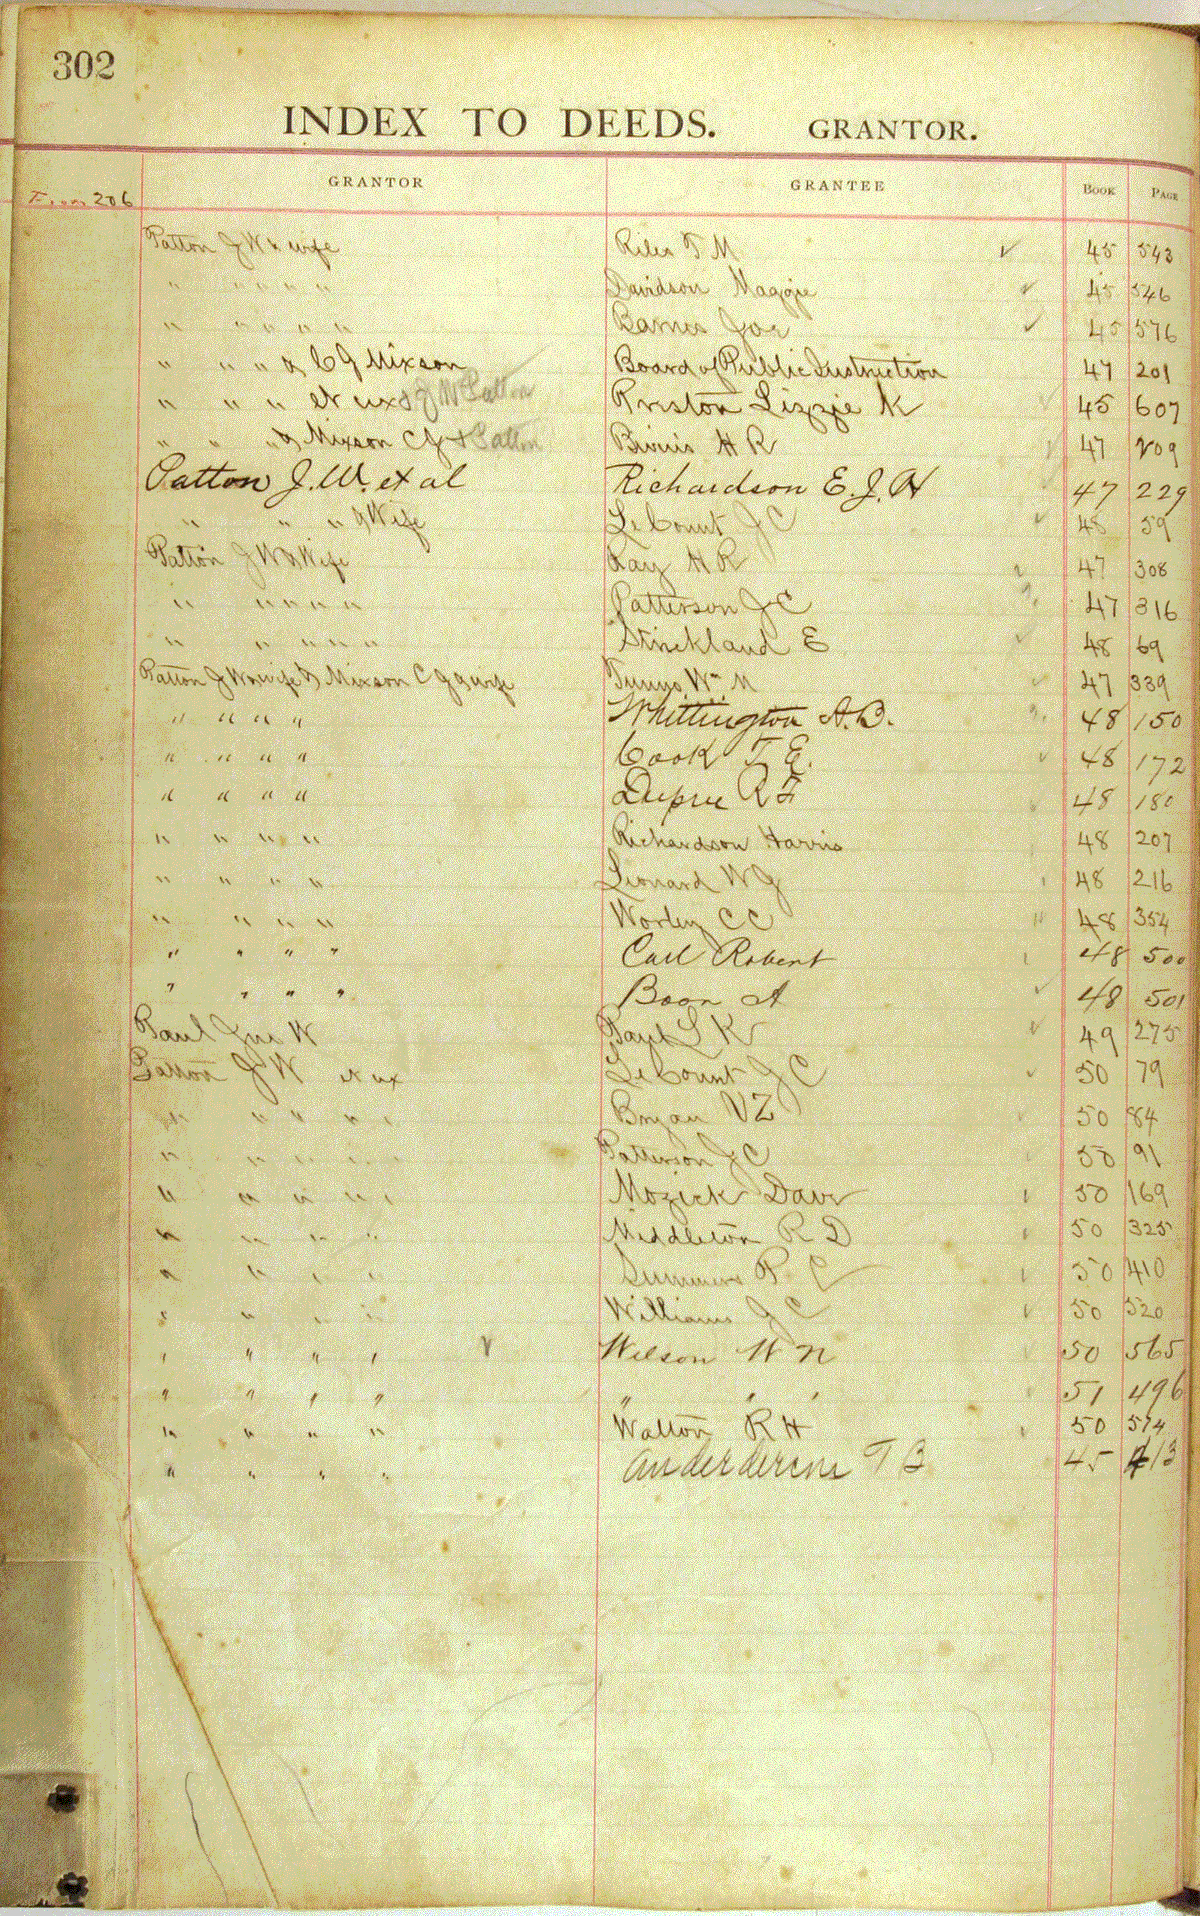 302
INDEX TO DEEDS. GRANTOR.
GRANTOR GRANTEE BOOK PAGE
From 206
Patton J W & wife Riles T M ✓ 45 543
" " " " " Davidson Maggie ✓ 45 546
" " " " " Barnes Joe ✓ 45 576
" " " & C G Mixson Board of Public Instruction 47 201
" " " et ux & J W Patton Preston Lizzie K ✓ 45 607
" " " & Mixson C G & Patton Bivins H R ✓ 47 209
Patton J. W. et al Richardson E. J. H ✓ 47 229
" " " & Wife LeCount J C ✓ 48 59
Patton J W & Wife Ray H R 47 308
" " " " " Patterson J C 47 316
" " " " " Strickland E ✓ 48 69
Patton J W & wife & Mixson C G & wife Wm N ✓ 47 339
" " " " Whittington A. B. 48 150
" " " " Cook T. E. ✓ 48 172
" " " " Dupree R F ✓ 48 180
" " " " Richardson Harris 48 207
" " " " Leonard W G 48 216
" " " " Worley C C " 48 354
" " " " Carl Robert 48 500
" " " " Boon A ✓ 48 501
Paul Jno W L K ✓ 49 275
Patton J W et ux LeCount J C ✓ 50 79
" " " " " Bryan V Z ✓ 50 84
" " " " " Patterson J C ✓ 50 91
" " " " " Mozick Dave ✓ 50 169
" " " " Middleton R D ✓ 50 325
" " " " Summers P C ✓ 50 410
" " " " Williams J C ✓ 50 520
" " " " ✓ Wilson W N ✓ 50 565
" " " " " " " 51 496
" " " " Walton R H 50 574
" " " " Anderderson T B 45 413